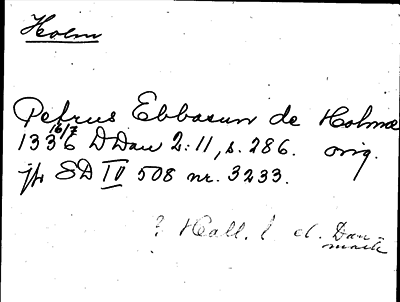 Holm
Petrus Ebbasun de Holmæ
1336 16/7 DDan 2:11, s. 286. orig.
jfr SD IV 508 nr. 3233.
? Hall. l. el. Dan-
mark